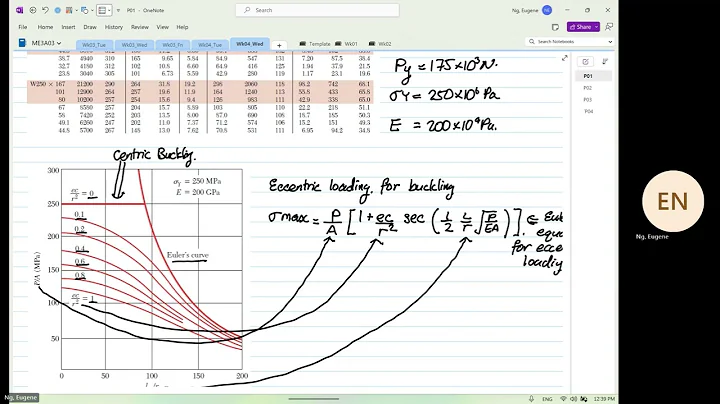 P01 - OneNote
Search
Ng, Eugene
File Home Insert Draw History Review View Help
Share
ME3A03
Wk03_Tue Wk03_Wed Wk03_Fri Wk04_Tue Wk04_Wed + Template Wk01 Wk02
Search Notebooks
38.7 4940 310 165 9.65 5.84 84.9 547 131 7.20 87.5 38.4
32.7 4180 312 102 10.8 6.60 64.9 416 125 1.94 37.9 21.5
23.8 3040 305 101 6.73 5.59 42.9 280 119 1.17 23.1 19.6
W250 × 167 21200 290 264 31.8 19.2 298 2060 118 98.2 742 68.1
101 12900 264 257 19.6 11.9 164 1240 113 55.8 433 65.8
80 10200 257 254 15.6 9.4 126 983 111 42.9 338 65.0
67 8580 257 204 15.7 8.89 103 805 110 22.2 218 51.1
58 7420 252 203 13.5 8.00 87.0 690 108 18.7 185 50.3
49.1 6260 247 202 11.0 7.37 71.2 574 106 15.2 151 49.3
44.8 5700 267 148 13.0 7.62 70.8 531 111 6.95 94.2 34.8
Py = 175×10³N.
σY = 250×10⁶ Pa
E = 200×10⁹ Pa.
P01
P02
P03
P04
Centric Buckling.
300
250
200
150
100
50
P/A (MPa)
ec/r² = 0
0.1
0.2
0.4
0.6
0.8
ec/r² = 1
σY = 250 MPa
E = 200 GPa
Euler's curve
0 50 100 150 200
Eccentric loading for buckling
σmax = P/A [1 + ec/r² sec (1/2 L/r √P/EA)] ⇐
equ
for ecce
loading
EN
Ng, Eugene
Ng, Eugene
ENG
12:39 PM